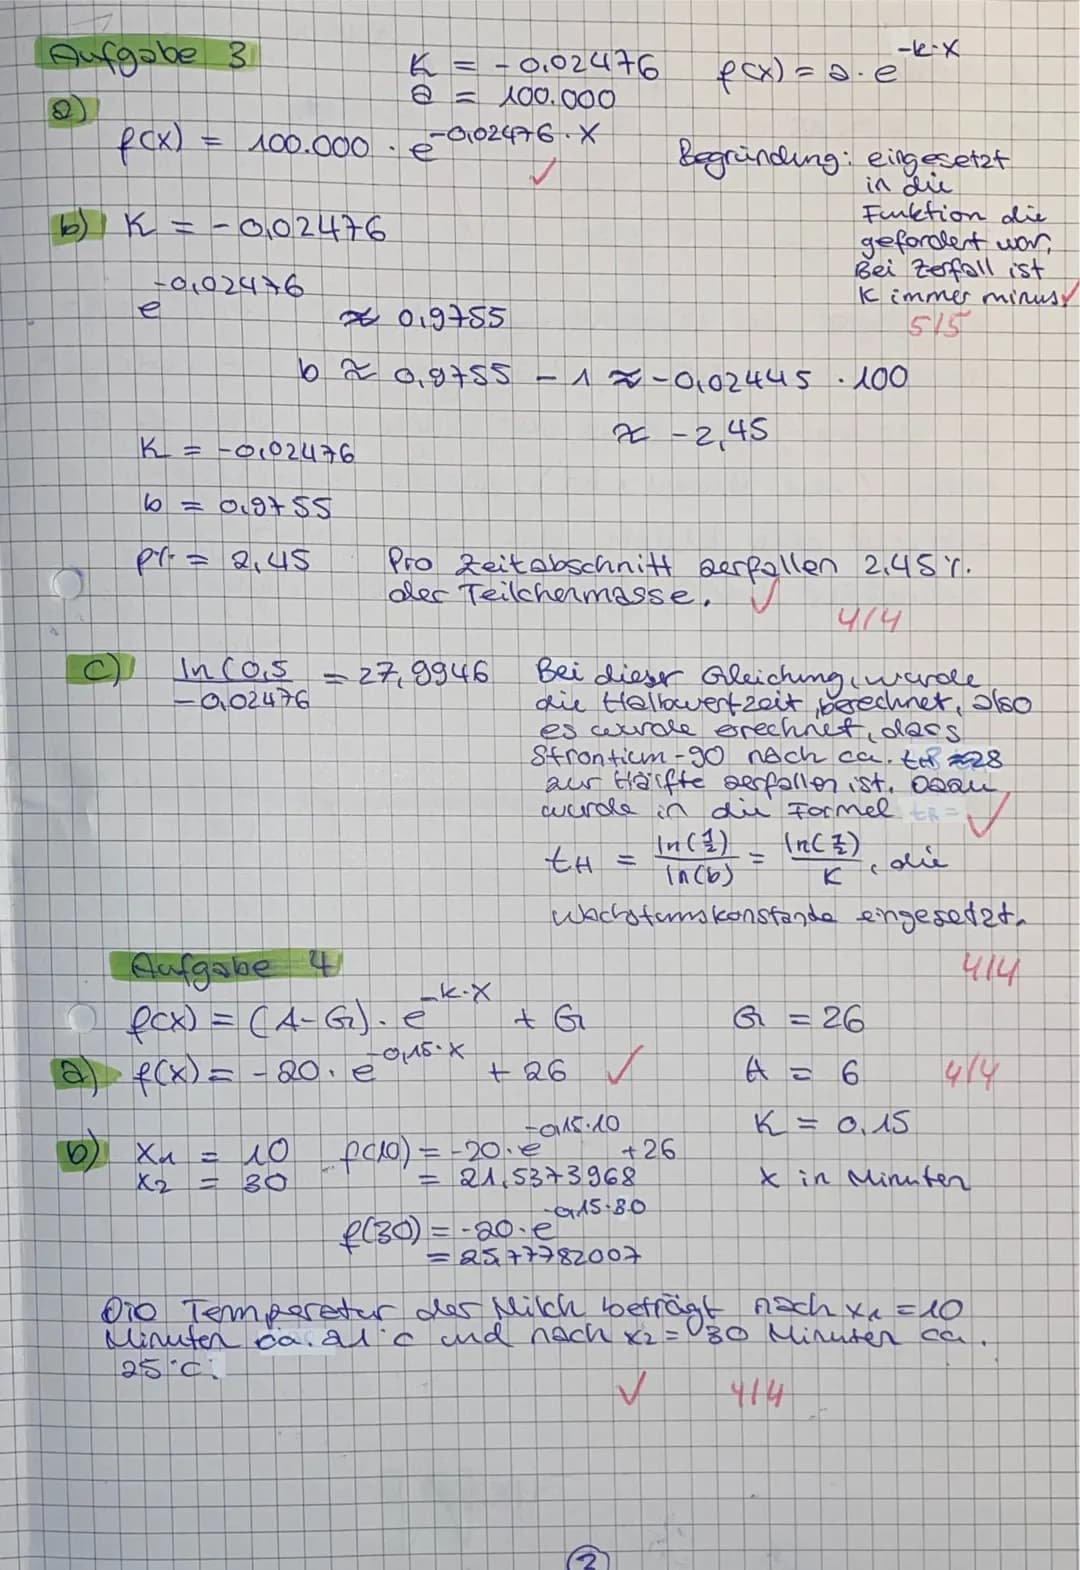 Aufgabe 3
K = -0,02476    f(x) = a · e^-k·x
a = 100.000
a)
f(x) = 100.000 · e^-0,02476·x ✓
Begründung: eingesetzt
in die
Funktion die
gefordert war,
Bei Zerfall ist
K immer minus ✓
5/5
b) K = -0,02476
e^-0,02476 ≈ 0,9755
b ≈ 0,9755 - 1 ≈ -0,02445 · 100
≈ -2,45
K = -0,02476
b = 0,9755
p% = 2,45    Pro Zeitabschnitt zerfallen 2,45%
der Teilchenmasse. ✓
4/4
c) ln(0,5 / -0,02476 = 27,9946    Bei dieser Gleichung, wurde
die Halbwertzeit berechnet, also
es wurde errechnet, dass
Strontium-90 nach ca. tH ≈ 28
zur Hälfte zerfallen ist. Dazu
wurde in die Formel ✓
tH = ln(1/2) / ln(b) = ln(1/2) / K, die
Wachstumskonstande eingesetzt.
4/4
Aufgabe 4
f(x) = (A-G) · e^-k·x + G    G = 26
a) f(x) = -20 · e^-0,15·x + 26 ✓    A = 6    4/4
K = 0,15
b) x1 = 10    f(10) = -20 · e^-0,15·10 + 26
x2 = 30    = 21,5373968    x in Minuten
f(30) = -20 · e^-0,15·30
= 25,77782007
Die Temperatur der Milch beträgt nach x1 = 10
Minuten ca. 21°C und nach x2 = 30 Minuten ca.
25°C.
✓    4/4
2